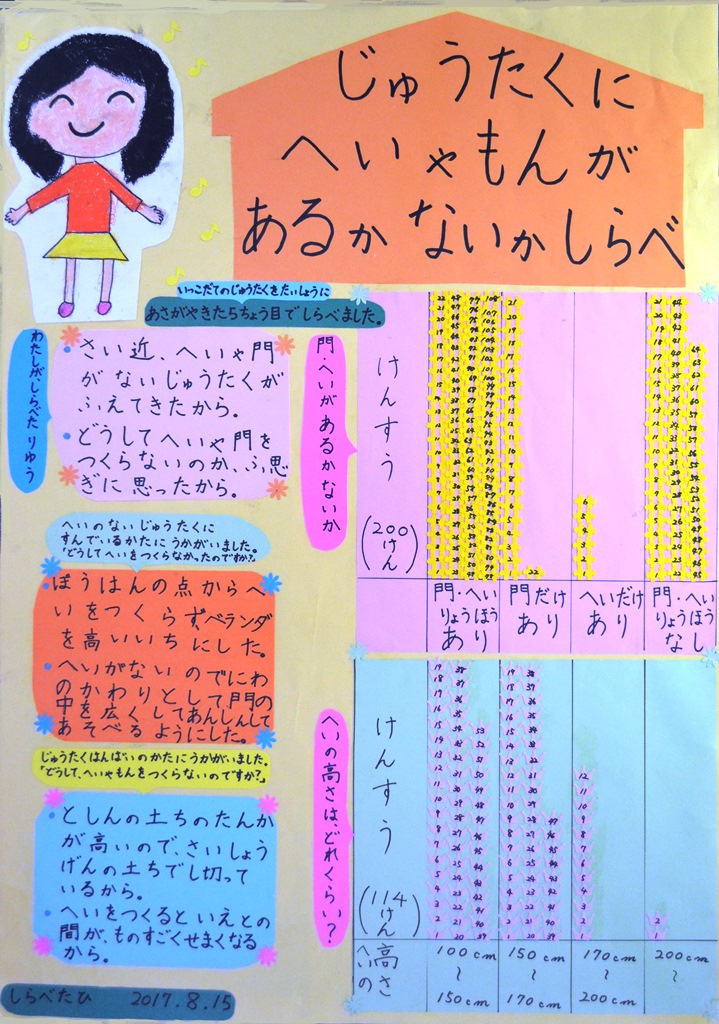 じゅうたくに
へいやもんが
あるかないかしらべ
いっこだてのじゅうたくをたいしょうに
あさがやきた5ちょう目でしらべました。
わたしがしらべたりゆう
・さい近、へいや門
がないじゅうたくが
ふえてきたから。
・どうしてへいや門を
つくらないのか、ふ思
ぎに思ったから。
へいのないじゅうたくに
すんでいるかたにうかがいました。
「どうしてへいをつくらなかったのですか?」
・ぼうはんの点からへ
いをつくらず、ベランダ
を高いいちにした。
・へいがないのでにわ
のかわりとして、門の
中を広くしてあんしんして
あそべるようにした。
じゅうたくはんばいのかたにうかがいました。
「どうして、へいやもんをつくらないのですか?」
・としんの土ちのたんか
が高いので、さいしょう
げんの土ちでし切って
いるから。
・へいをつくるといえとの
間が、ものすごくせまくなる
から。
しらべたひ 2017.8.15
門へいがあるかないか
けんすう
(200けん)
門・へい
りょうほう
あり
門だけ
あり
へいだけ
あり
門・へい
りょうほう
なし
へいの高さは、どれくらい?
けんすう
(114けん)
へいの高さ
100cm
〜
150cm
150cm
〜
170cm
170cm
〜
200cm
200cm
〜